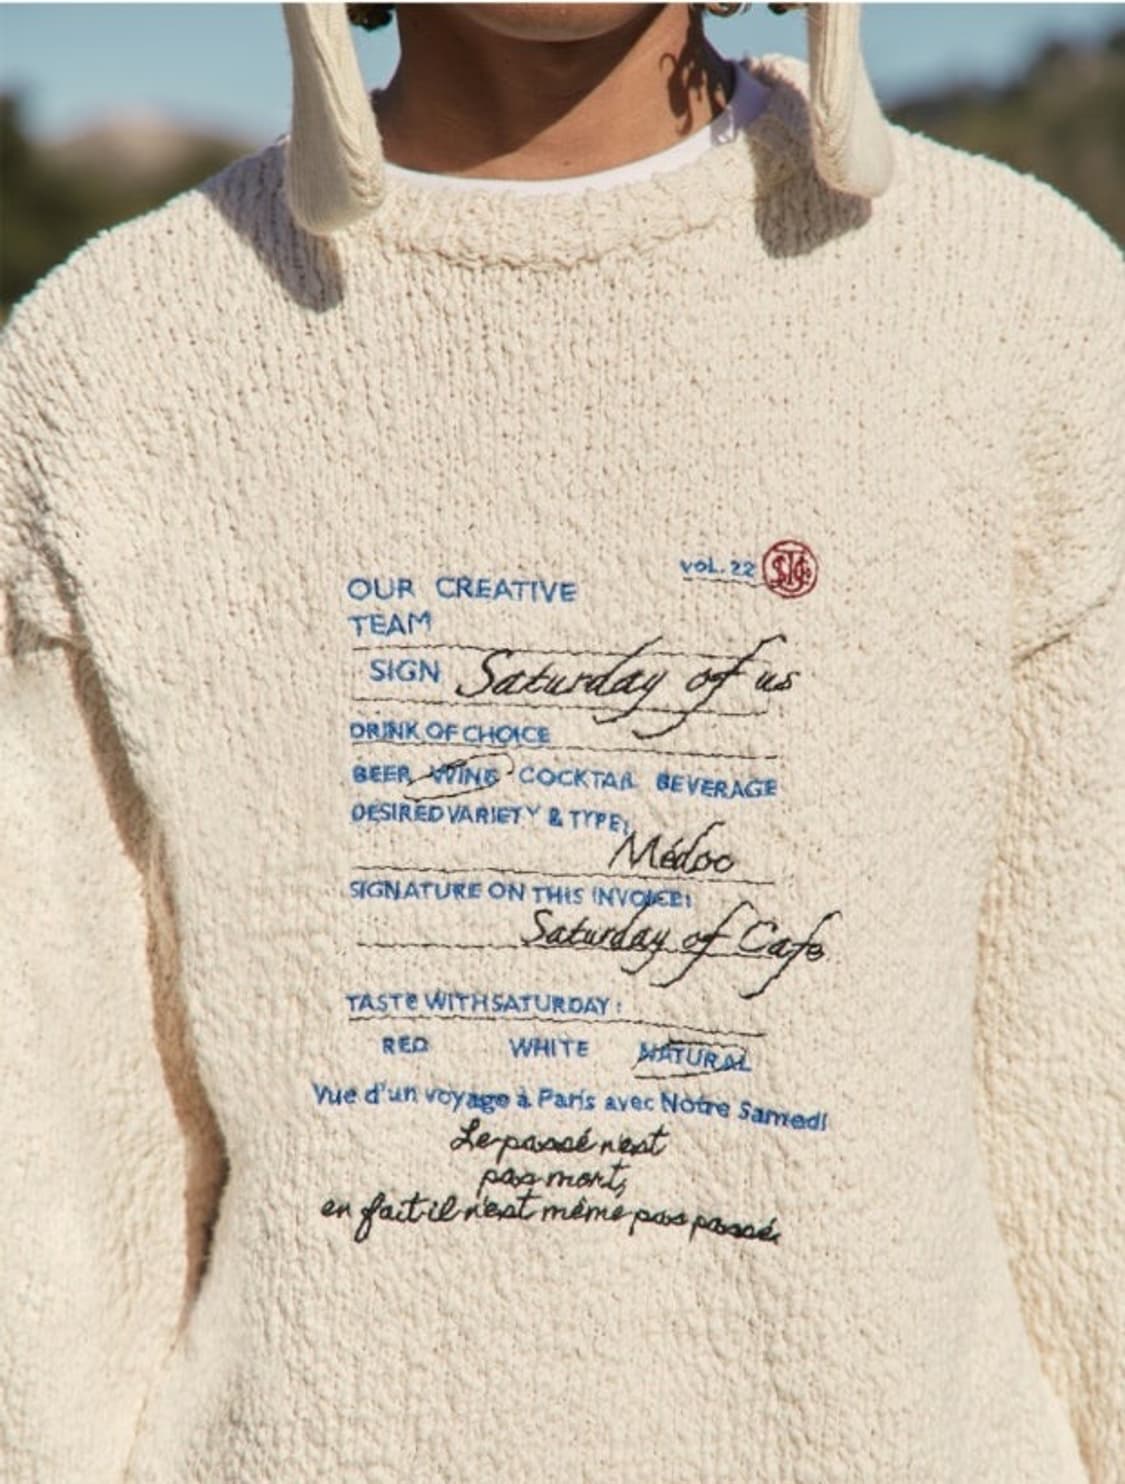 VOL. 22
OUR CREATIVE
TEAM
SIGN Saturday of us
DRINK OF CHOICE
BEER WINE COCKTAIL BEVERAGE
DESIRED VARIETY & TYPE:
Médoc
SIGNATURE ON THIS INVOICE:
Saturday of Cafe
TASTE WITH SATURDAY:
RED WHITE NATURAL
Vue d'un voyage à Paris avec Notre Samedi
Le passé n'est
pas mort,
en fait il n'est même pas passé.